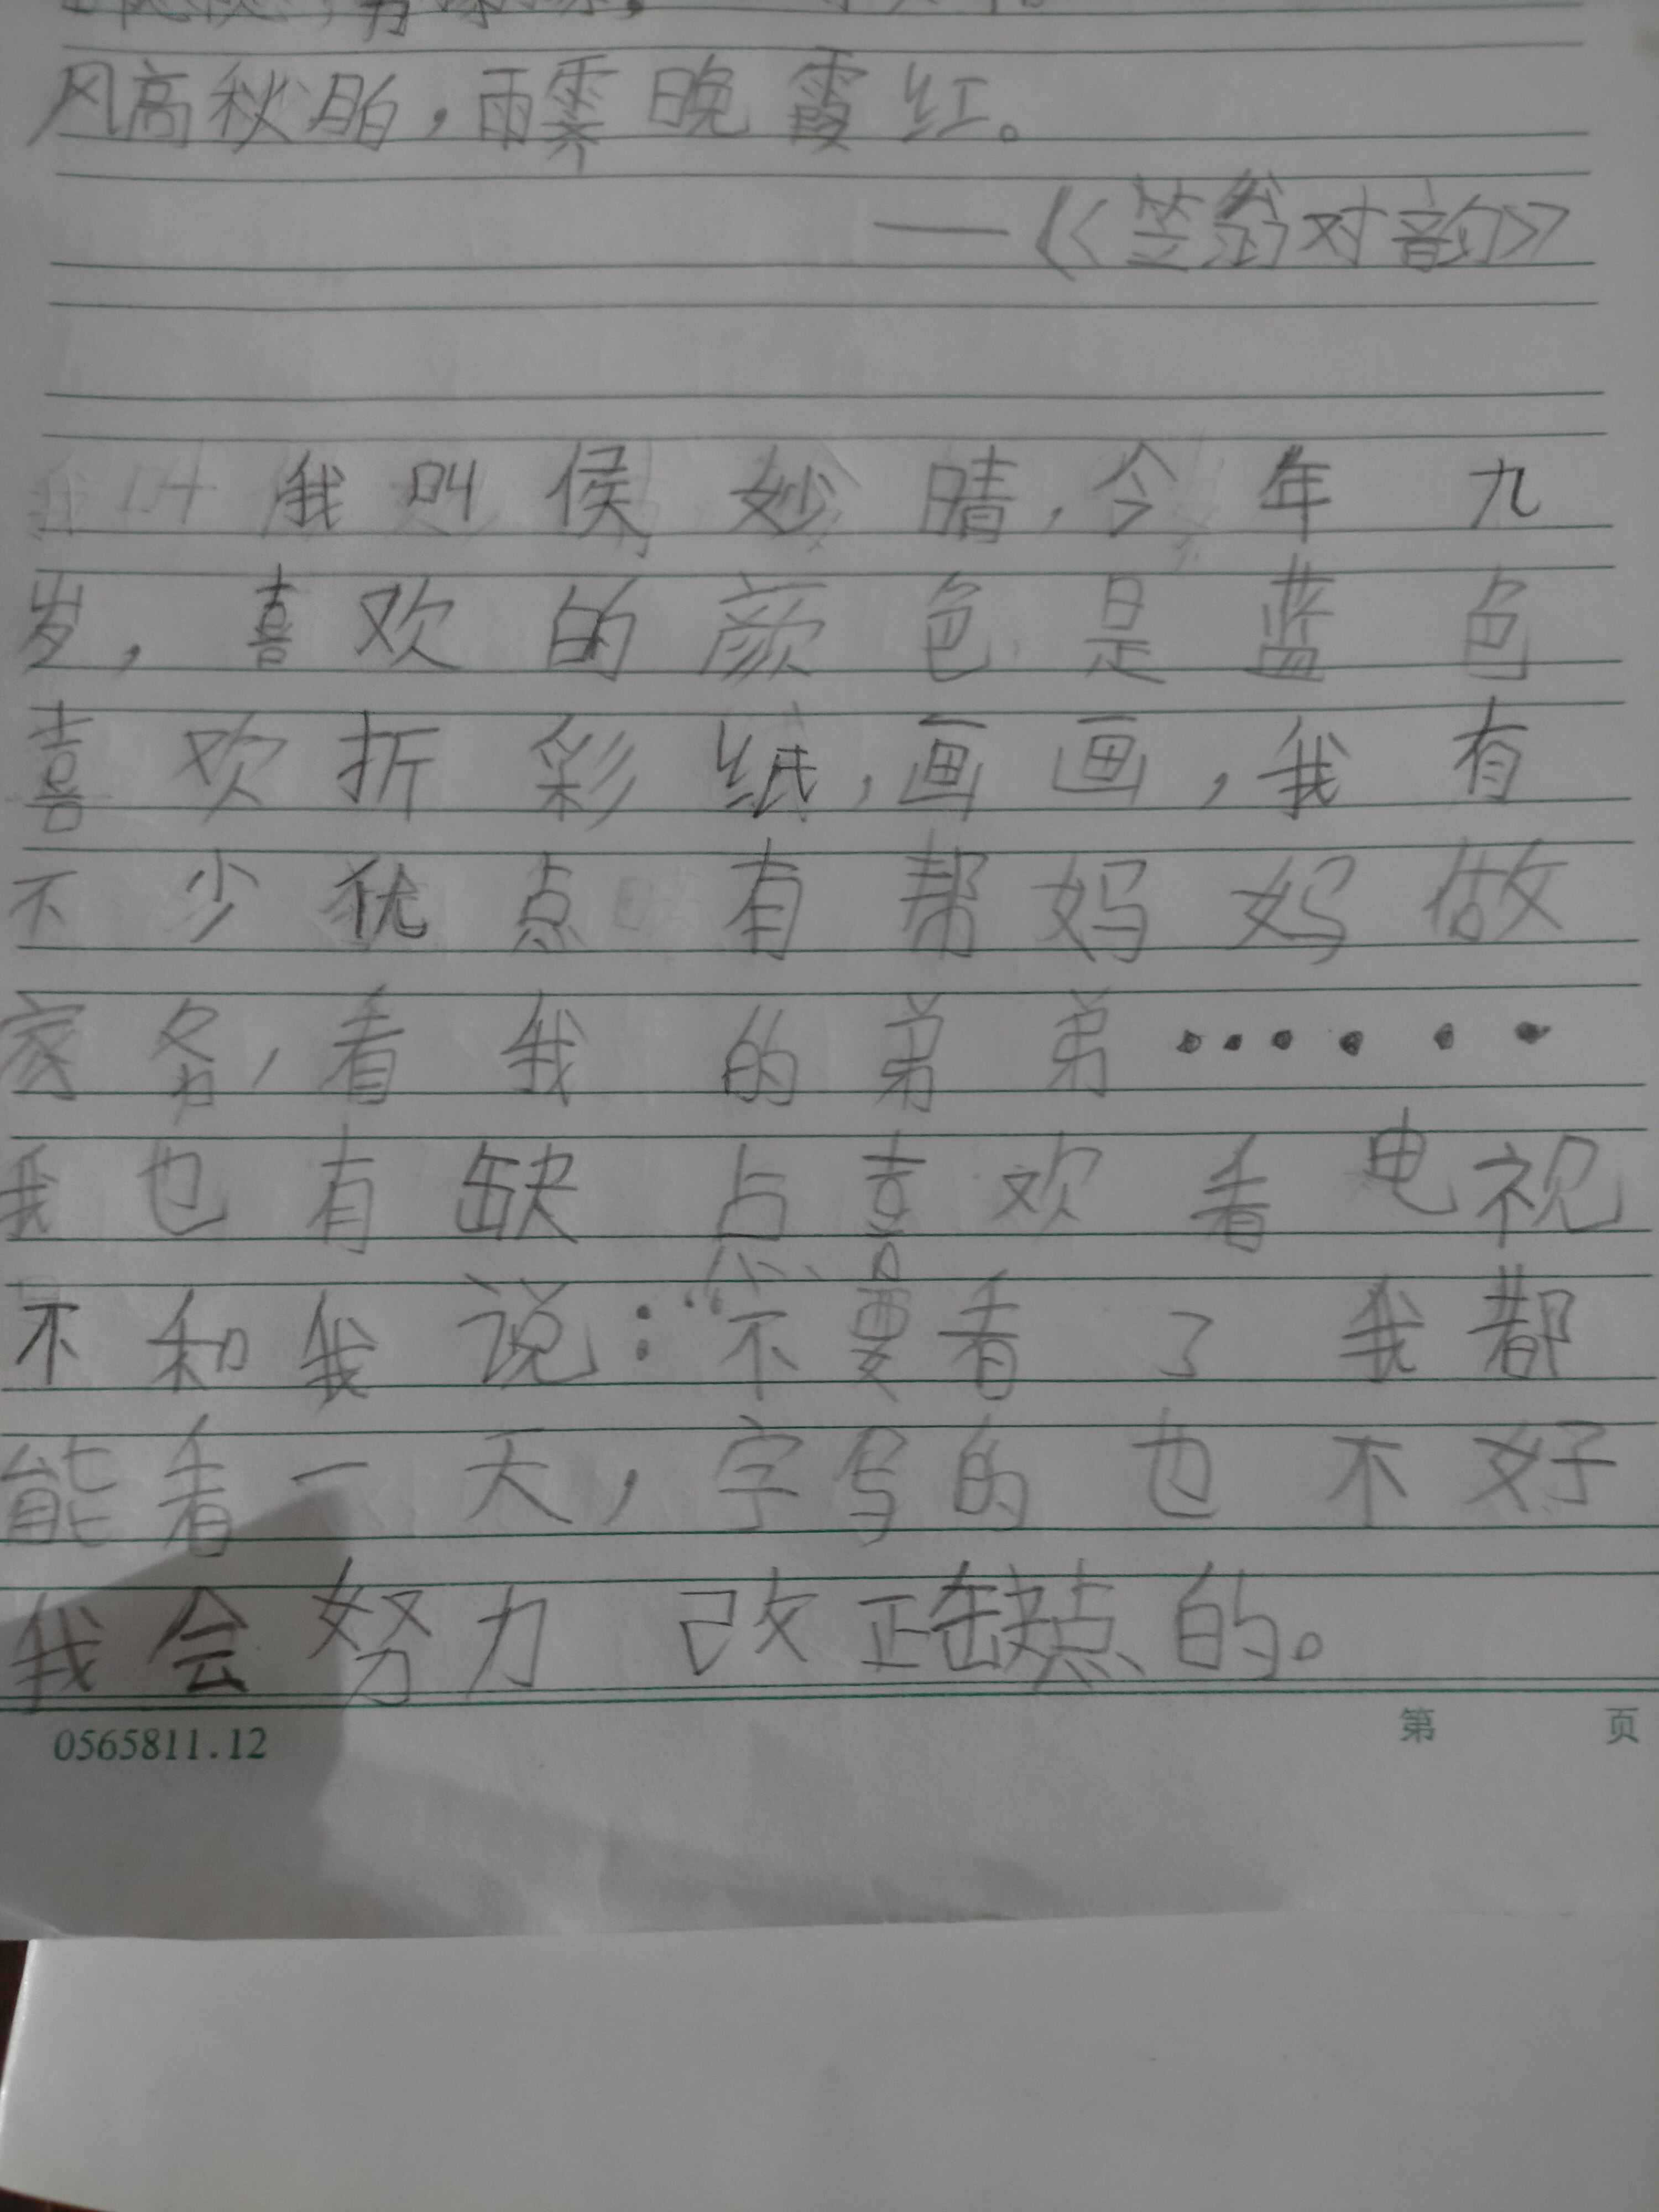 风高秋月白，雨霁晚霞红。
——《笠翁对韵》
我叫 我叫侯妙晴，今年九
岁，喜欢的颜色是蓝色
喜欢折彩纸，画画，我有
不少优点有帮妈妈做
家务，看我的弟弟……
我也有缺点喜欢看电视
不和我说：“不要看了我都
能看一天，字写的也不好
我会努力改正缺点的。
0565811.12
第 页